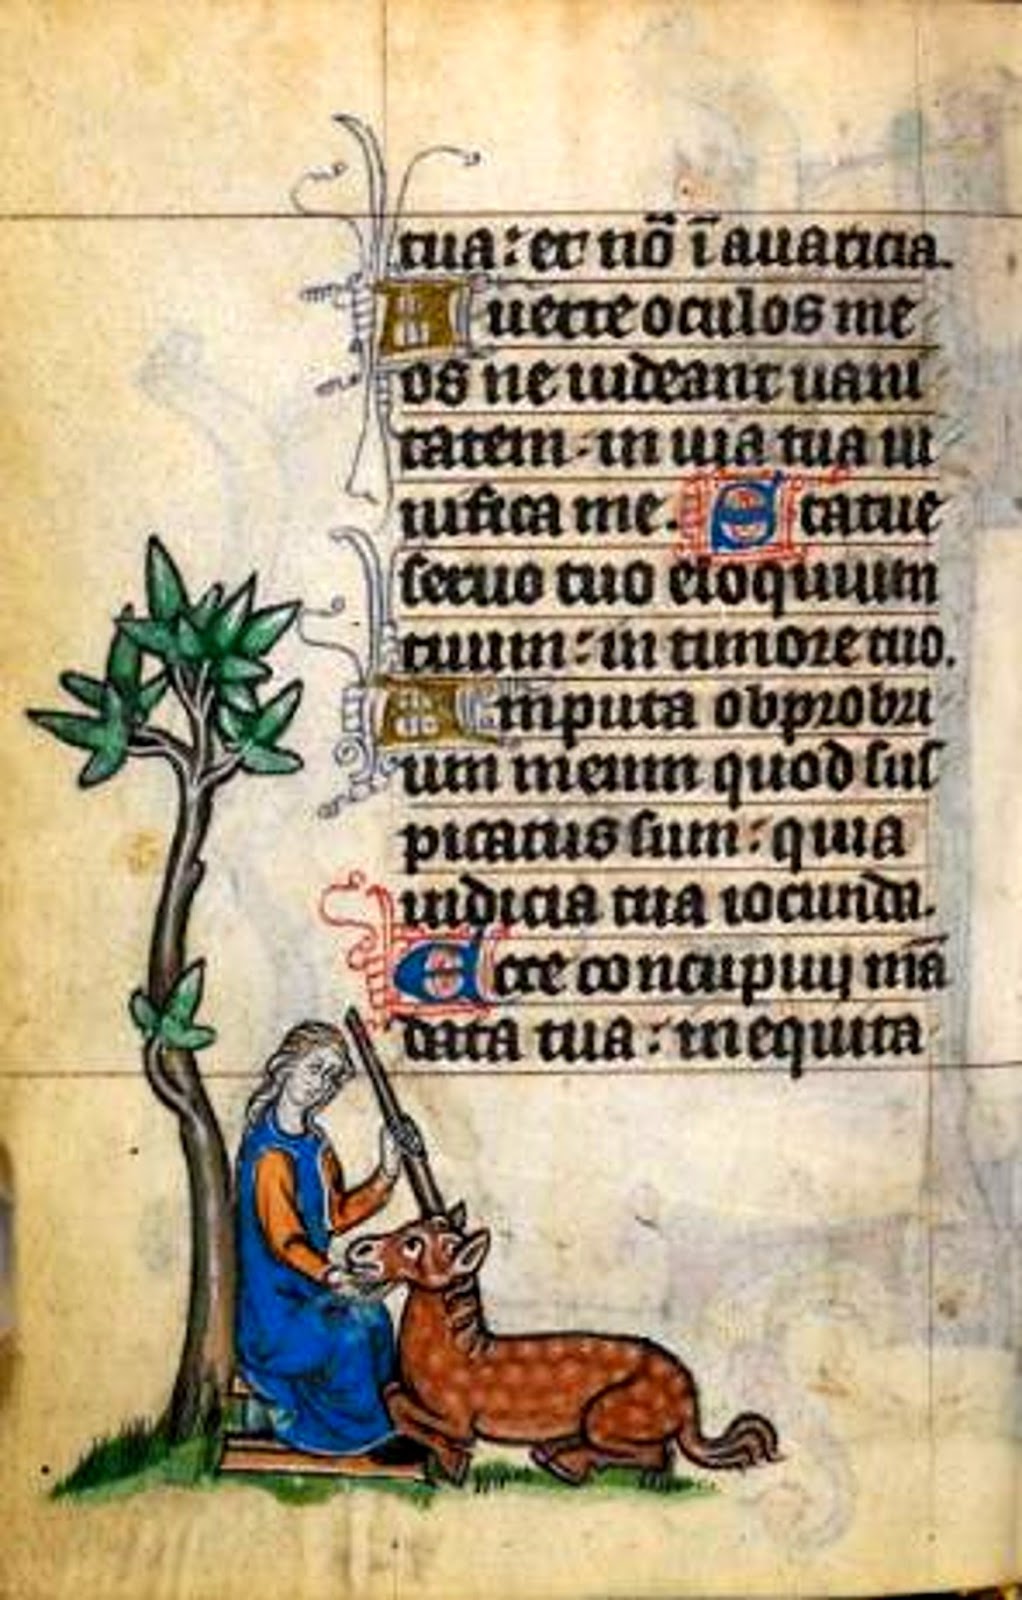 tua: et nō ī avaricia.
Averte oculos me
os ne videant vani
tatem: in via tua vi
vifica me. Statue
servo tuo eloquium
tuum: in timore tuo.
Amputa obprobri
um meum quod sus
picatus sum: quia
iudicia tua iocunda.
Ecce concupivi mā
data tua: in equita